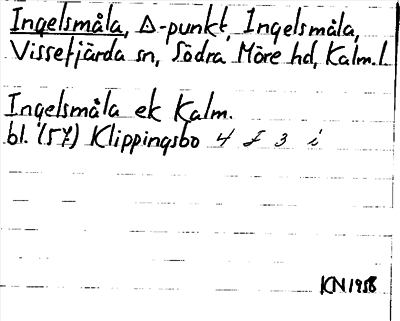 Ingelsmåla, Δ-punkt, Ingelsmåla,
Vissefjärda sn, Södra Möre hd, Kalm. l.
Ingelsmåla ek Kalm.
bl. (57) Klippingsbo 4 F 3 i
KN 1958